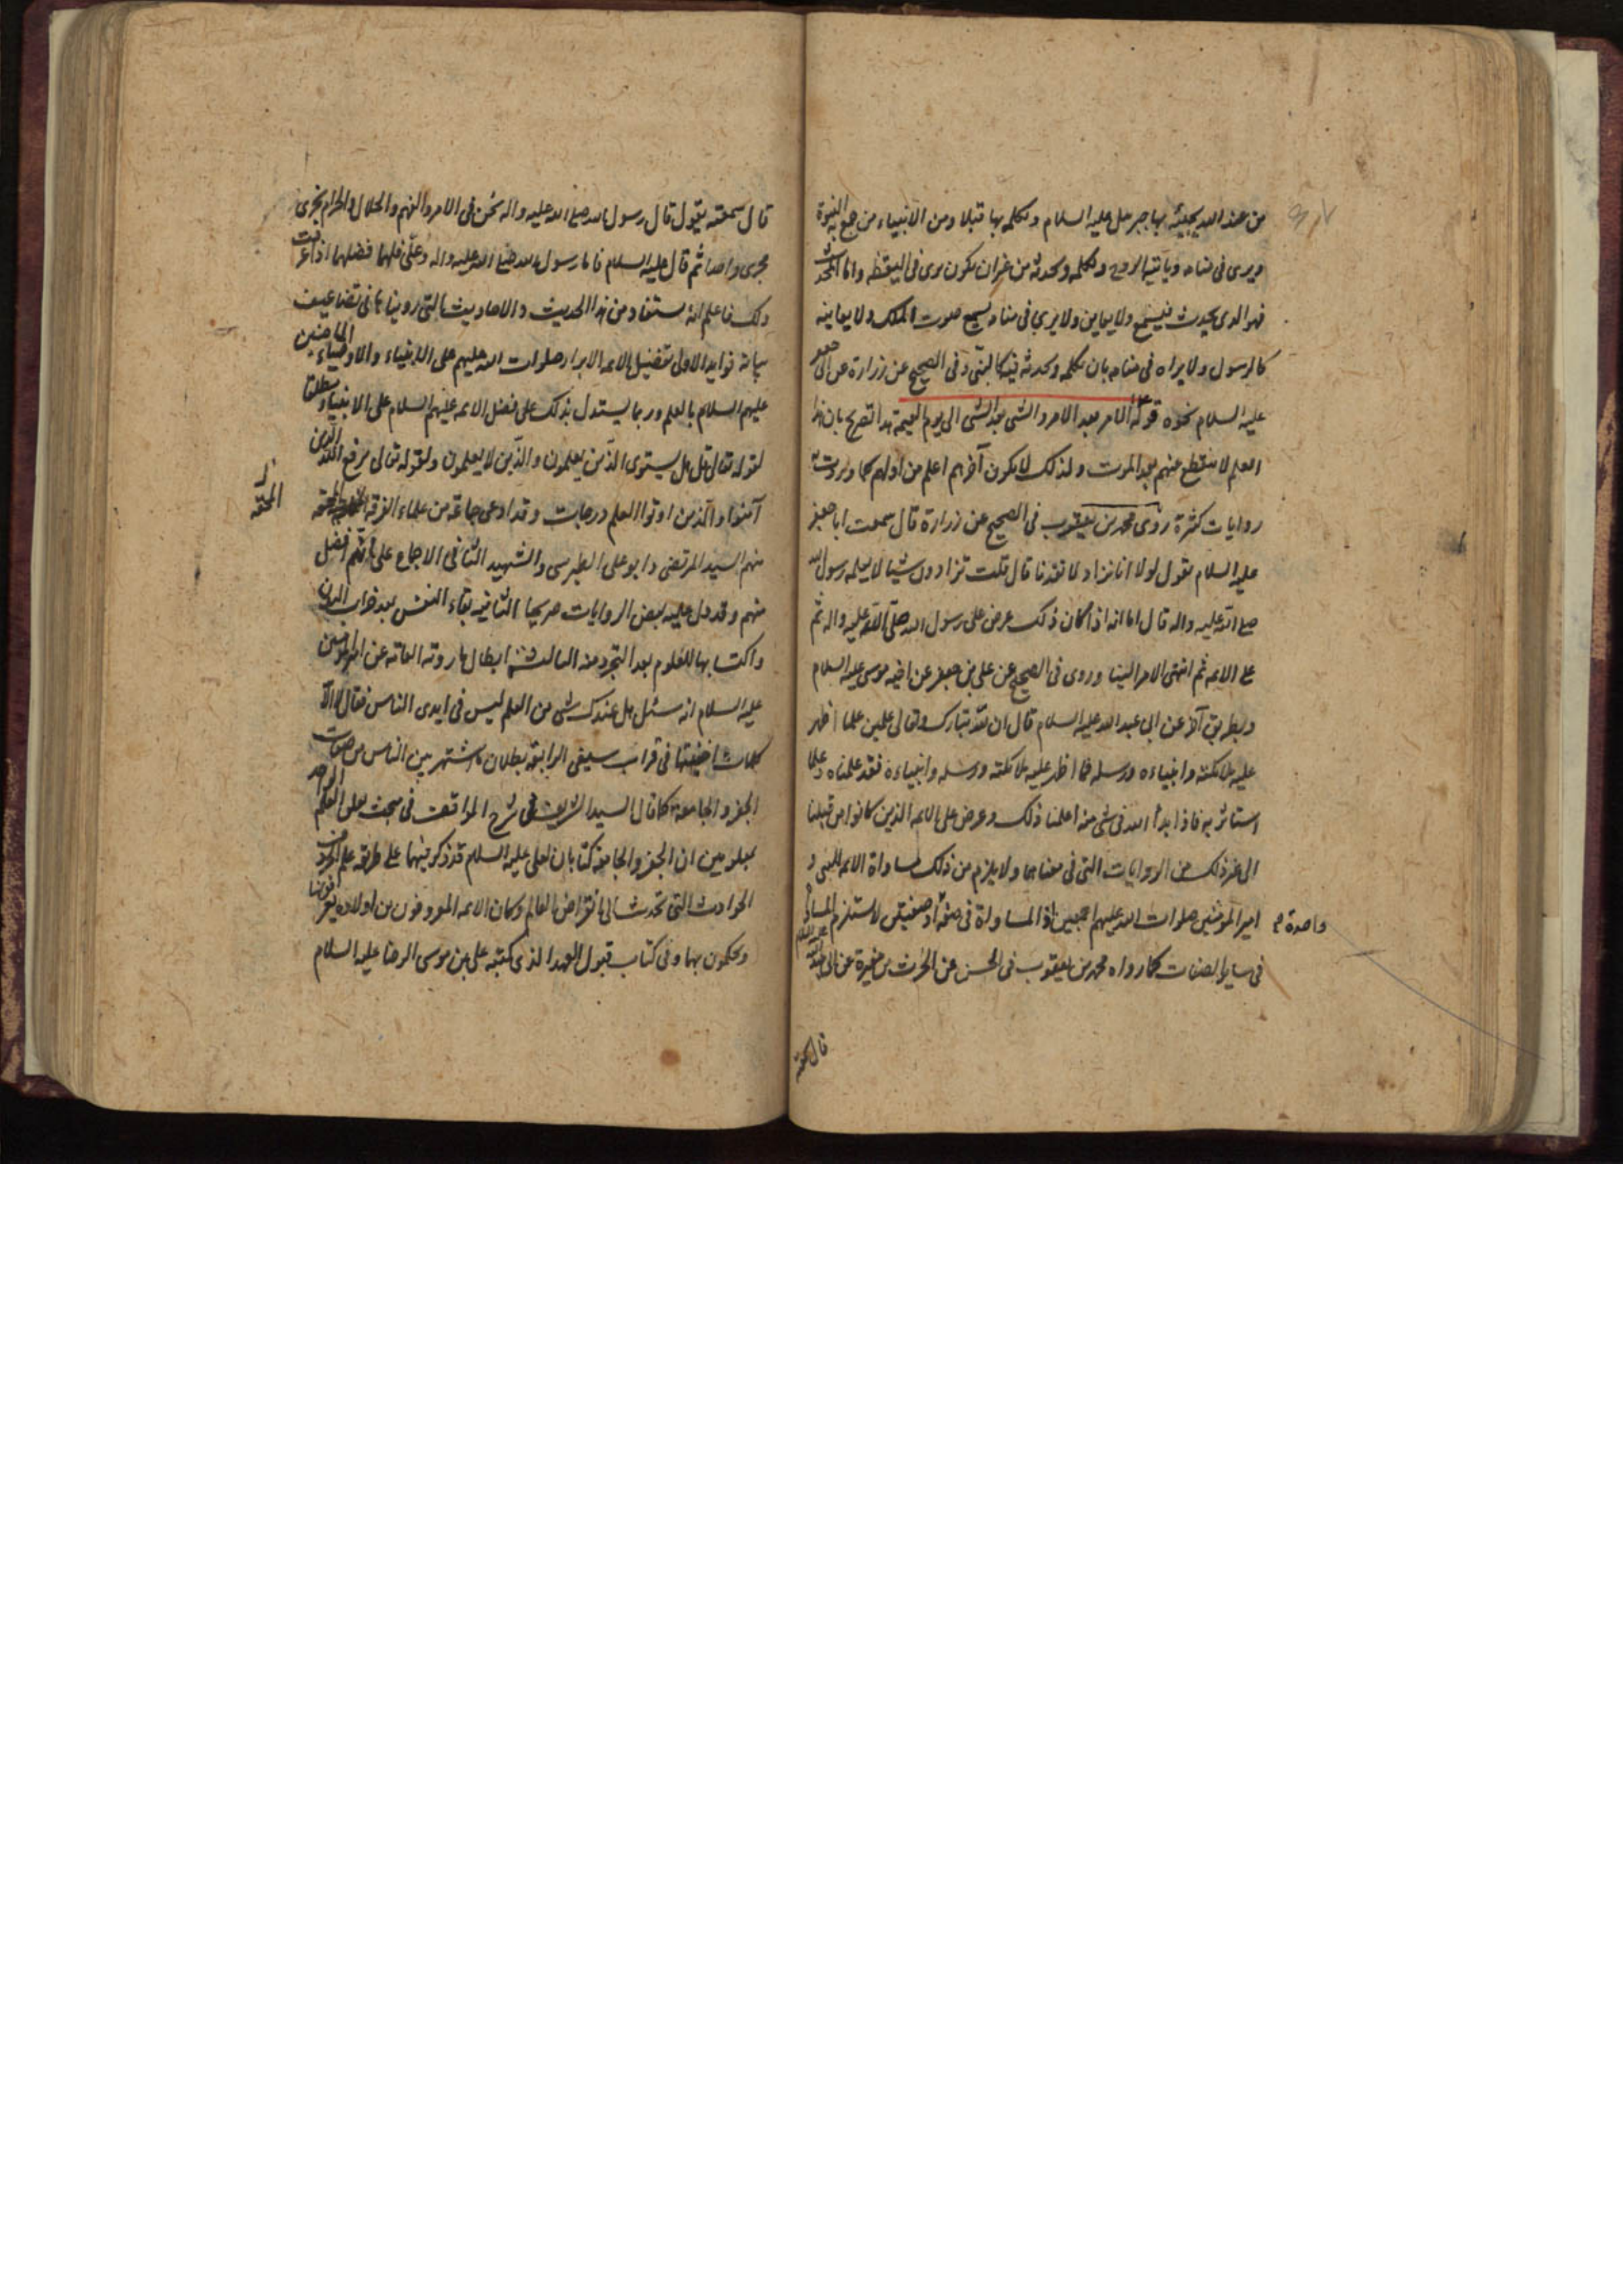 من عند الله يجيئه بها جبرئيل عليه السلام ويكلمه بها قبلا ومن الانبياء من جمع له النبوة
ويرى فى منامه ويأتيه الروح ويكلمه ويحدثه من غير ان يكون يرى فى اليقظه واما المحدث
فهو الذى يحدث فيسمع ولا يعاين ولا يرى فى منامه يسمع صوت الملك ولا يعاينه
كالرسول ولا يراه فى منامه بان يكلمه ويحدثه فيه كالنبى وفى الصحيح عن زرارة عن ابى جعفر
عليه السلام نحوه قوله الامر بعد الامر والشى بعد الشى الى يوم القيمة هذا تصريح بان هذا
العلم لا ينقطع منهم بعد الموت ولذلك لا يكون آخرهم اعلم من اولهم كما وردت به
روايات كثيرة روى محمد بن يعقوب فى الصحيح عن زرارة قال سمعت ابا جعفر
عليه السلام يقول لولا انا نزداد لانفدنا قال قلت تزدادون شيئا لا يعلمه رسول الله
صلى الله عليه واله قال اما انه اذا كان ذلك عرض على رسول الله صلى الله عليه واله ثم
على الائمه ثم انتهى الامر الينا وروى فى الصحيح عن على بن جعفر عن اخيه موسى عليه السلام
وبطريق آخر عن ابى عبد الله عليه السلام قال ان لله تبارك وتعالى علمين علما اظهر
عليه ملائكته وانبياءه ورسله فما اظهر عليه ملائكته ورسله وانبياءه فقد علمناه وعلما
استاثر به فاذا بدأ الله فى شى منه اعلمنا ذلك وعرض على الائمه الذين كانوا من قبلنا
الى غير ذلك من الروايات التى فى معناها ولا يلزم من ذلك مساواة الائمه للنبى و
امير المؤمنين صلوات الله عليهم اجمعين اذ المساواة فى صفة او صفتين لا يستلزم المساواة
واحدة م
فى ساير الصفات كما رواه محمد بن يعقوب فى الحسن عن الحرث بن مغيرة عن ابى عبد الله عليه السلام
قال سمعته
قال سمعته يقول قال رسول الله صلى الله عليه واله نحن فى الامر والفهم والحلال والحرام نجرى
مجرى واحدا ثم قال عليه السلام فاما رسول الله صلى الله عليه واله وعلى فلهما فضلهما اذا عرفت
ذلك فاعلم انه يستفاد من هذا الحديث والاحاديث التى رويناها فى تضاعيف
بيانه فوايد الاولى تفضيل الائمه الابرار صلوات الله عليهم على الانبياء والاوصياء الماضين
عليهم السلام بالعلم وربما يستدل بذلك على فضل الائمه عليهم السلام على الانبياء مطلقا
لقوله تعالى قل هل يستوى الذين يعلمون والذين لا يعلمون ولقوله تعالى يرفع الله الذين
آمنوا والذين اوتوا العلم درجات وقد ادعى جماعة من علماء الفرقه
المحقه
منهم السيد المرتضى وابو على الطبرسى والشهيد الثانى الاجماع على انهم افضل
منهم وقد دل عليه بعض الروايات صريحا الثانيه بقاء النفس بعد خراب البدن
واكتسابها للعلوم بعد التجرد منه الثالثة ابطال ما روته العامه عن امير المؤمنين
عليه السلام انه سئل هل عندك شى من العلم ليس فى ايدى الناس فقال لا الا
كلمات اخفيتها فى قراب سيفى الرابعة بطلان ما اشتهر بين الناس من
الجفر والجامعة كما قال السيد الشريف فى شرح المواقف فى مبحث تعلق العلم الواحد
بمعلومين ان الجفر والجامعة كتابان لعلى عليه السلام قد ذكر فيهما على طريقة علم الحروف
الحوادث التى تحدث الى انقراض العالم وكان الائمه المعروفون من اولاده يعرفونها
ويحكمون بها وفى كتاب قبول العهد الذى كتبه على بن موسى الرضا عليه السلام